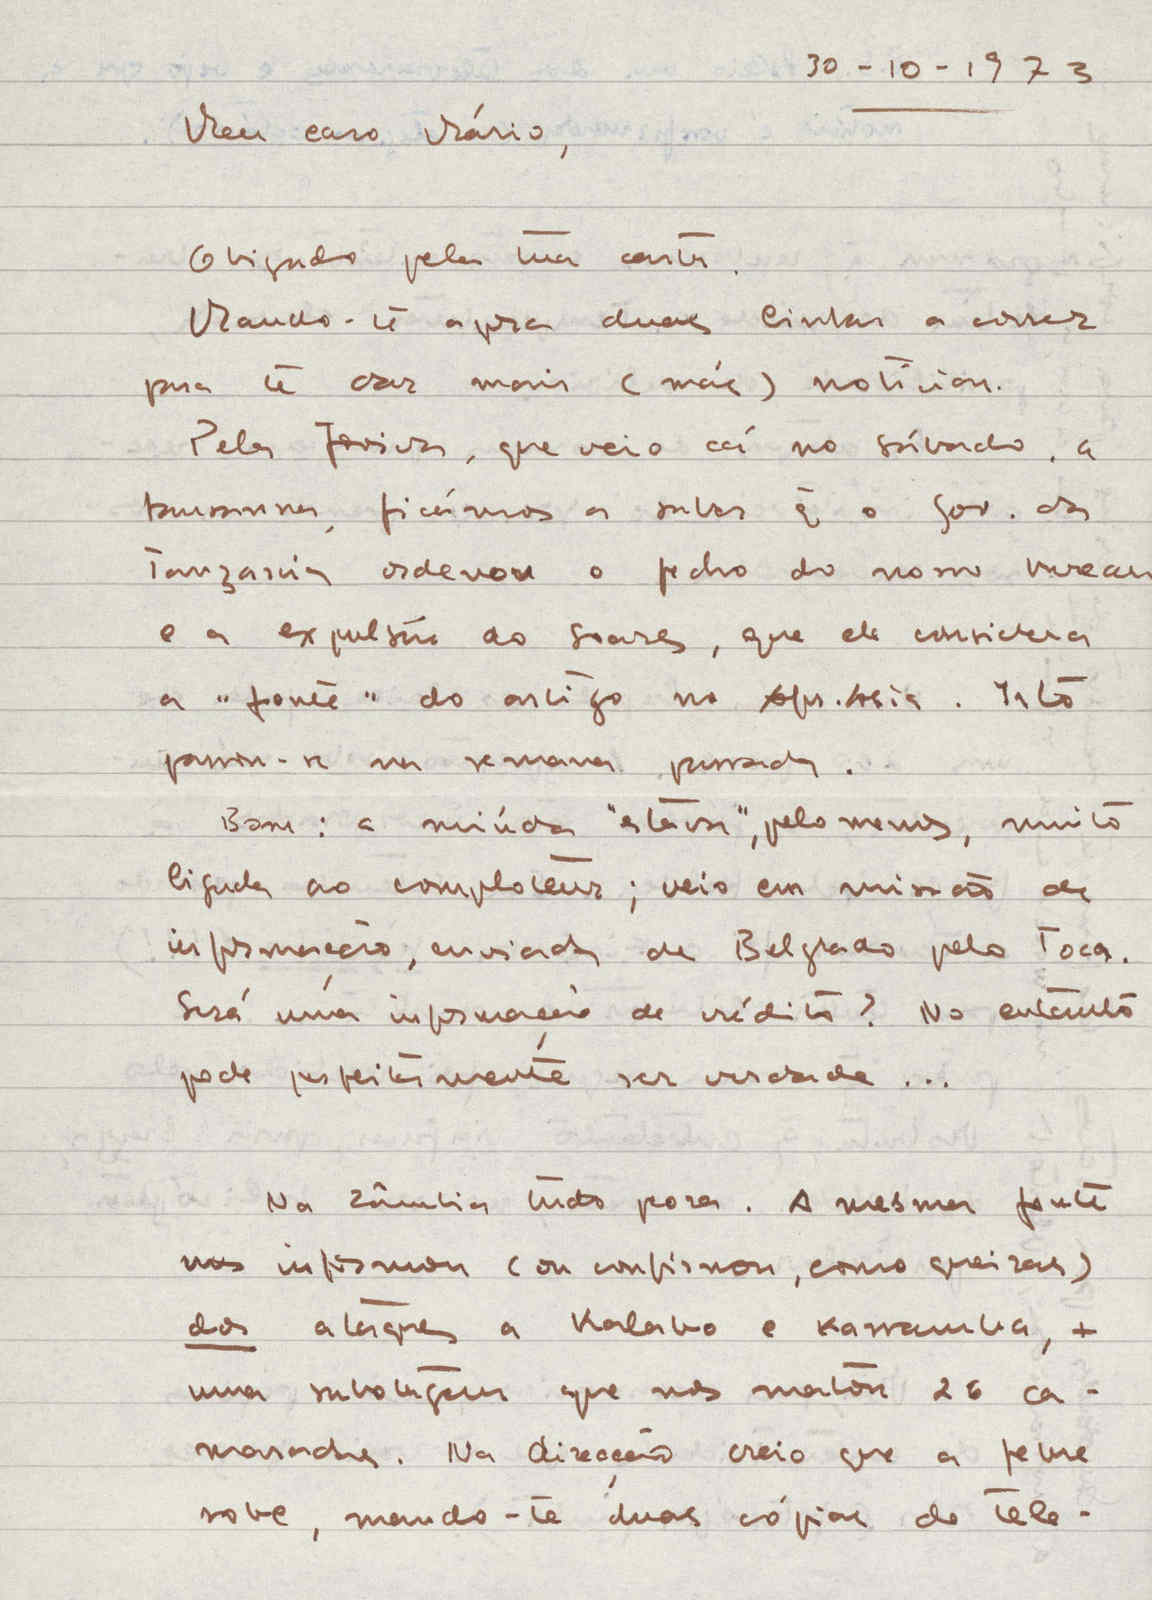 30-10-1973
Meu caro Mário,
Obrigado pela tua carta.
Mando-te agora duas linhas a correr
para te dar mais (más) notícias.
Pela , que veio cá no sábado, a
ficámos a saber q̃ o Gov. da
Tanzania ordenou o fecho do nosso bureau
e a expulsão do Soares, que ele considera
a "fonte" do artigo no Afr.Asia. Isto
passou-se na semana passada.
Bom: a miúda "estava", pelo menos, muito
ligada ao comploteur; veio em missão de
informação, enviada de Belgrado pelo Toca.
Será uma informação de crédito? No entanto
pode perfeitamente ser verdade...
Na Zâmbia tudo pora. A mesma fonte
nos informou (ou confirmou, como queiras)
dos ataques a Kalabo e Kassamba, +
uma sabotagem que nos matou 26 ca-
maradas. Na Direcção creio que a febre
sobe, mando-te duas cópias do tele-